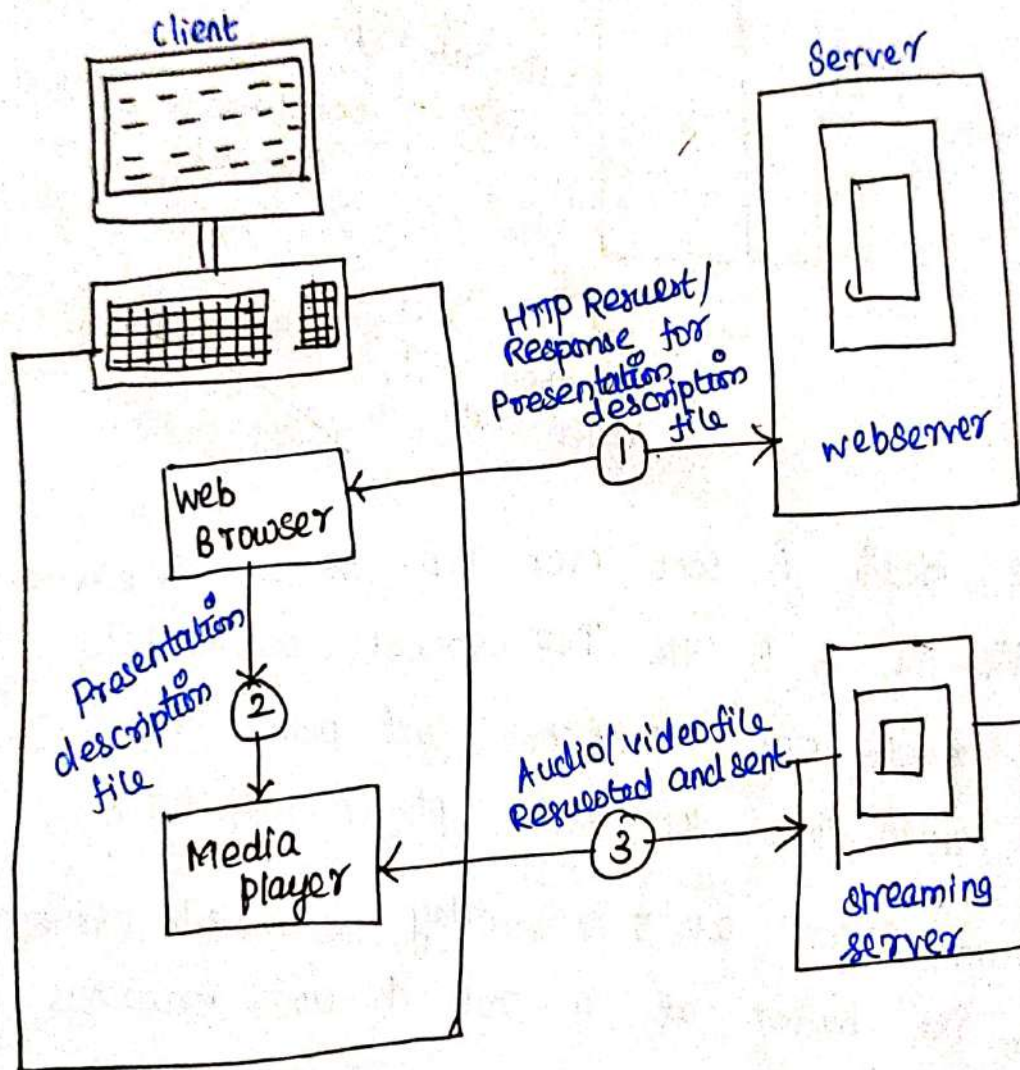 client
Server
HTTP Request/
Response for
Presentation
description
file
1
webserver
Web
Browser
Presentation
description
file
2
Audio/videofile
Requested and sent
3
Media
player
streaming
server